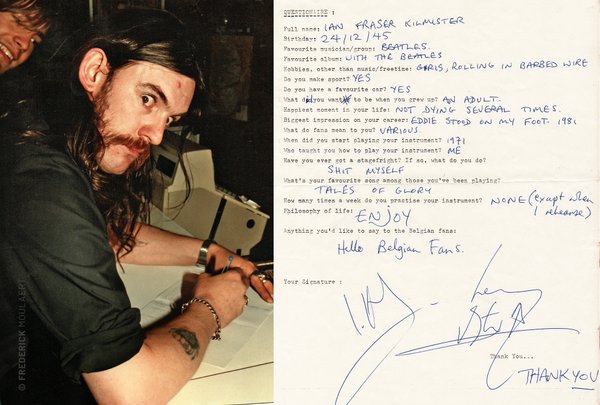 QUESTIONAIRE :
Full name: IAN FRASER KILMISTER
Birthday: 24/12/45
Favourite musician/group: BEATLES.
Favourite album: WITH THE BEATLES
Hobbies, other than music/freetime: GIRLS, ROLLING IN BARBED WIRE
Do you make sport? YES
Do you have a favourite car? YES
What did you want to be when you grew up? AN ADULT.
Happiest moment in your life: NOT DYING SEVERAL TIMES.
Biggest impression on your career: EDDIE STOOD ON MY FOOT. 1981
What do fans mean to you? VARIOUS
When did you start playing your instrument? 1971
Who taught you how to play your instrument? ME
Have you ever got a stagefright? If so, what do you do?
SHIT MYSELF
What's your favourite song among those you've been playing?
TALES OF GLORY
How many times a week do you practise your instrument? NONE (except when
I rehearse)
Philosophy of life: ENJOY
Anything you'd like to say to the Belgian fans:
Hello Belgian Fans.
Your Signature :
Thank You...
THANK YOU
© FREDERICK MOULAERT